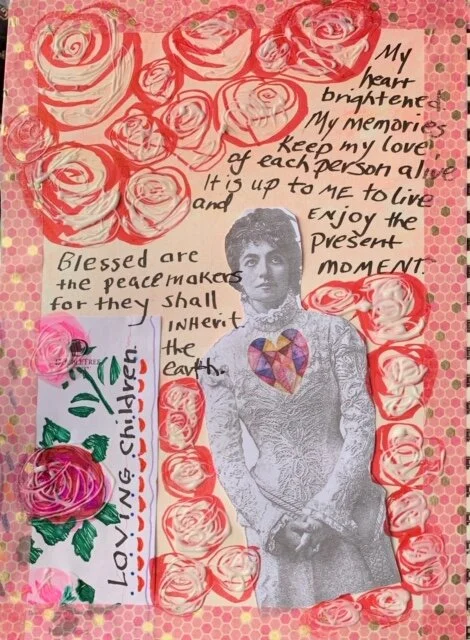 My
heart
brightened.
My memories
Keep my love
of each person alive
It is up to ME to live
and
ENjoy the
Present
MOMENT.
Blessed are
the peacemakers
for they shall
INHerit
the
earth.
LOVING Children